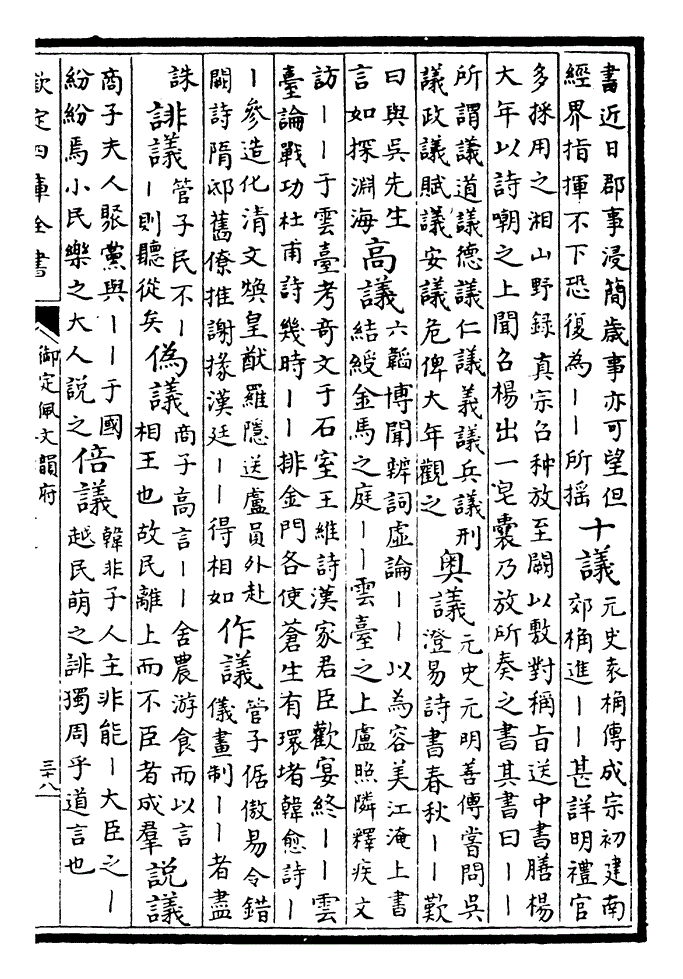 書近日郡事浸簡歲事亦可望但
經界指揮不下恐復為丨丨所搖
十議
元史袁桷傳成宗初建南
郊桷進丨丨甚詳明禮官
多採用之湘山野録真宗召种放至闕以敷對稱旨送中書膳楊
大年以詩嘲之上聞召楊出一皂囊乃放所奏之書其書曰丨丨
所謂議道議德議仁議義議兵議刑
議政議賦議安議危俾大年觀之
奥議
元史元明善傳嘗問吳
澄易詩書春秋丨丨歎
曰與吳先生
言如探淵海
高議
六韜博聞辨詞虛論丨丨以為容美江淹上書
結綬金馬之庭丨丨雲臺之上盧照隣釋疾文
訪丨丨于雲臺考奇文于石室王維詩漢家君臣歡宴終丨丨雲
臺論戰功杜甫詩幾時丨丨排金門各使蒼生有環堵韓愈詩丨
丨參造化清文煥皇猷羅隱送盧員外赴
闕詩隋邸舊僚推謝掾漢廷丨丨得相如
作議
管子倨傲易令錯
儀畫制丨丨者盡
誅
誹議
管子民不丨
丨則聽從矣
偽議
商子高言丨丨舍農游食而以言
相王也故民離上而不臣者成羣
説議
商子夫人聚黨與丨丨于國
紛紛焉小民樂之大人説之
倍議
韓非子人主非能丨大臣之丨
越民萌之誹獨周乎道言也
欽定四庫全書
御定佩文韻府
三十八